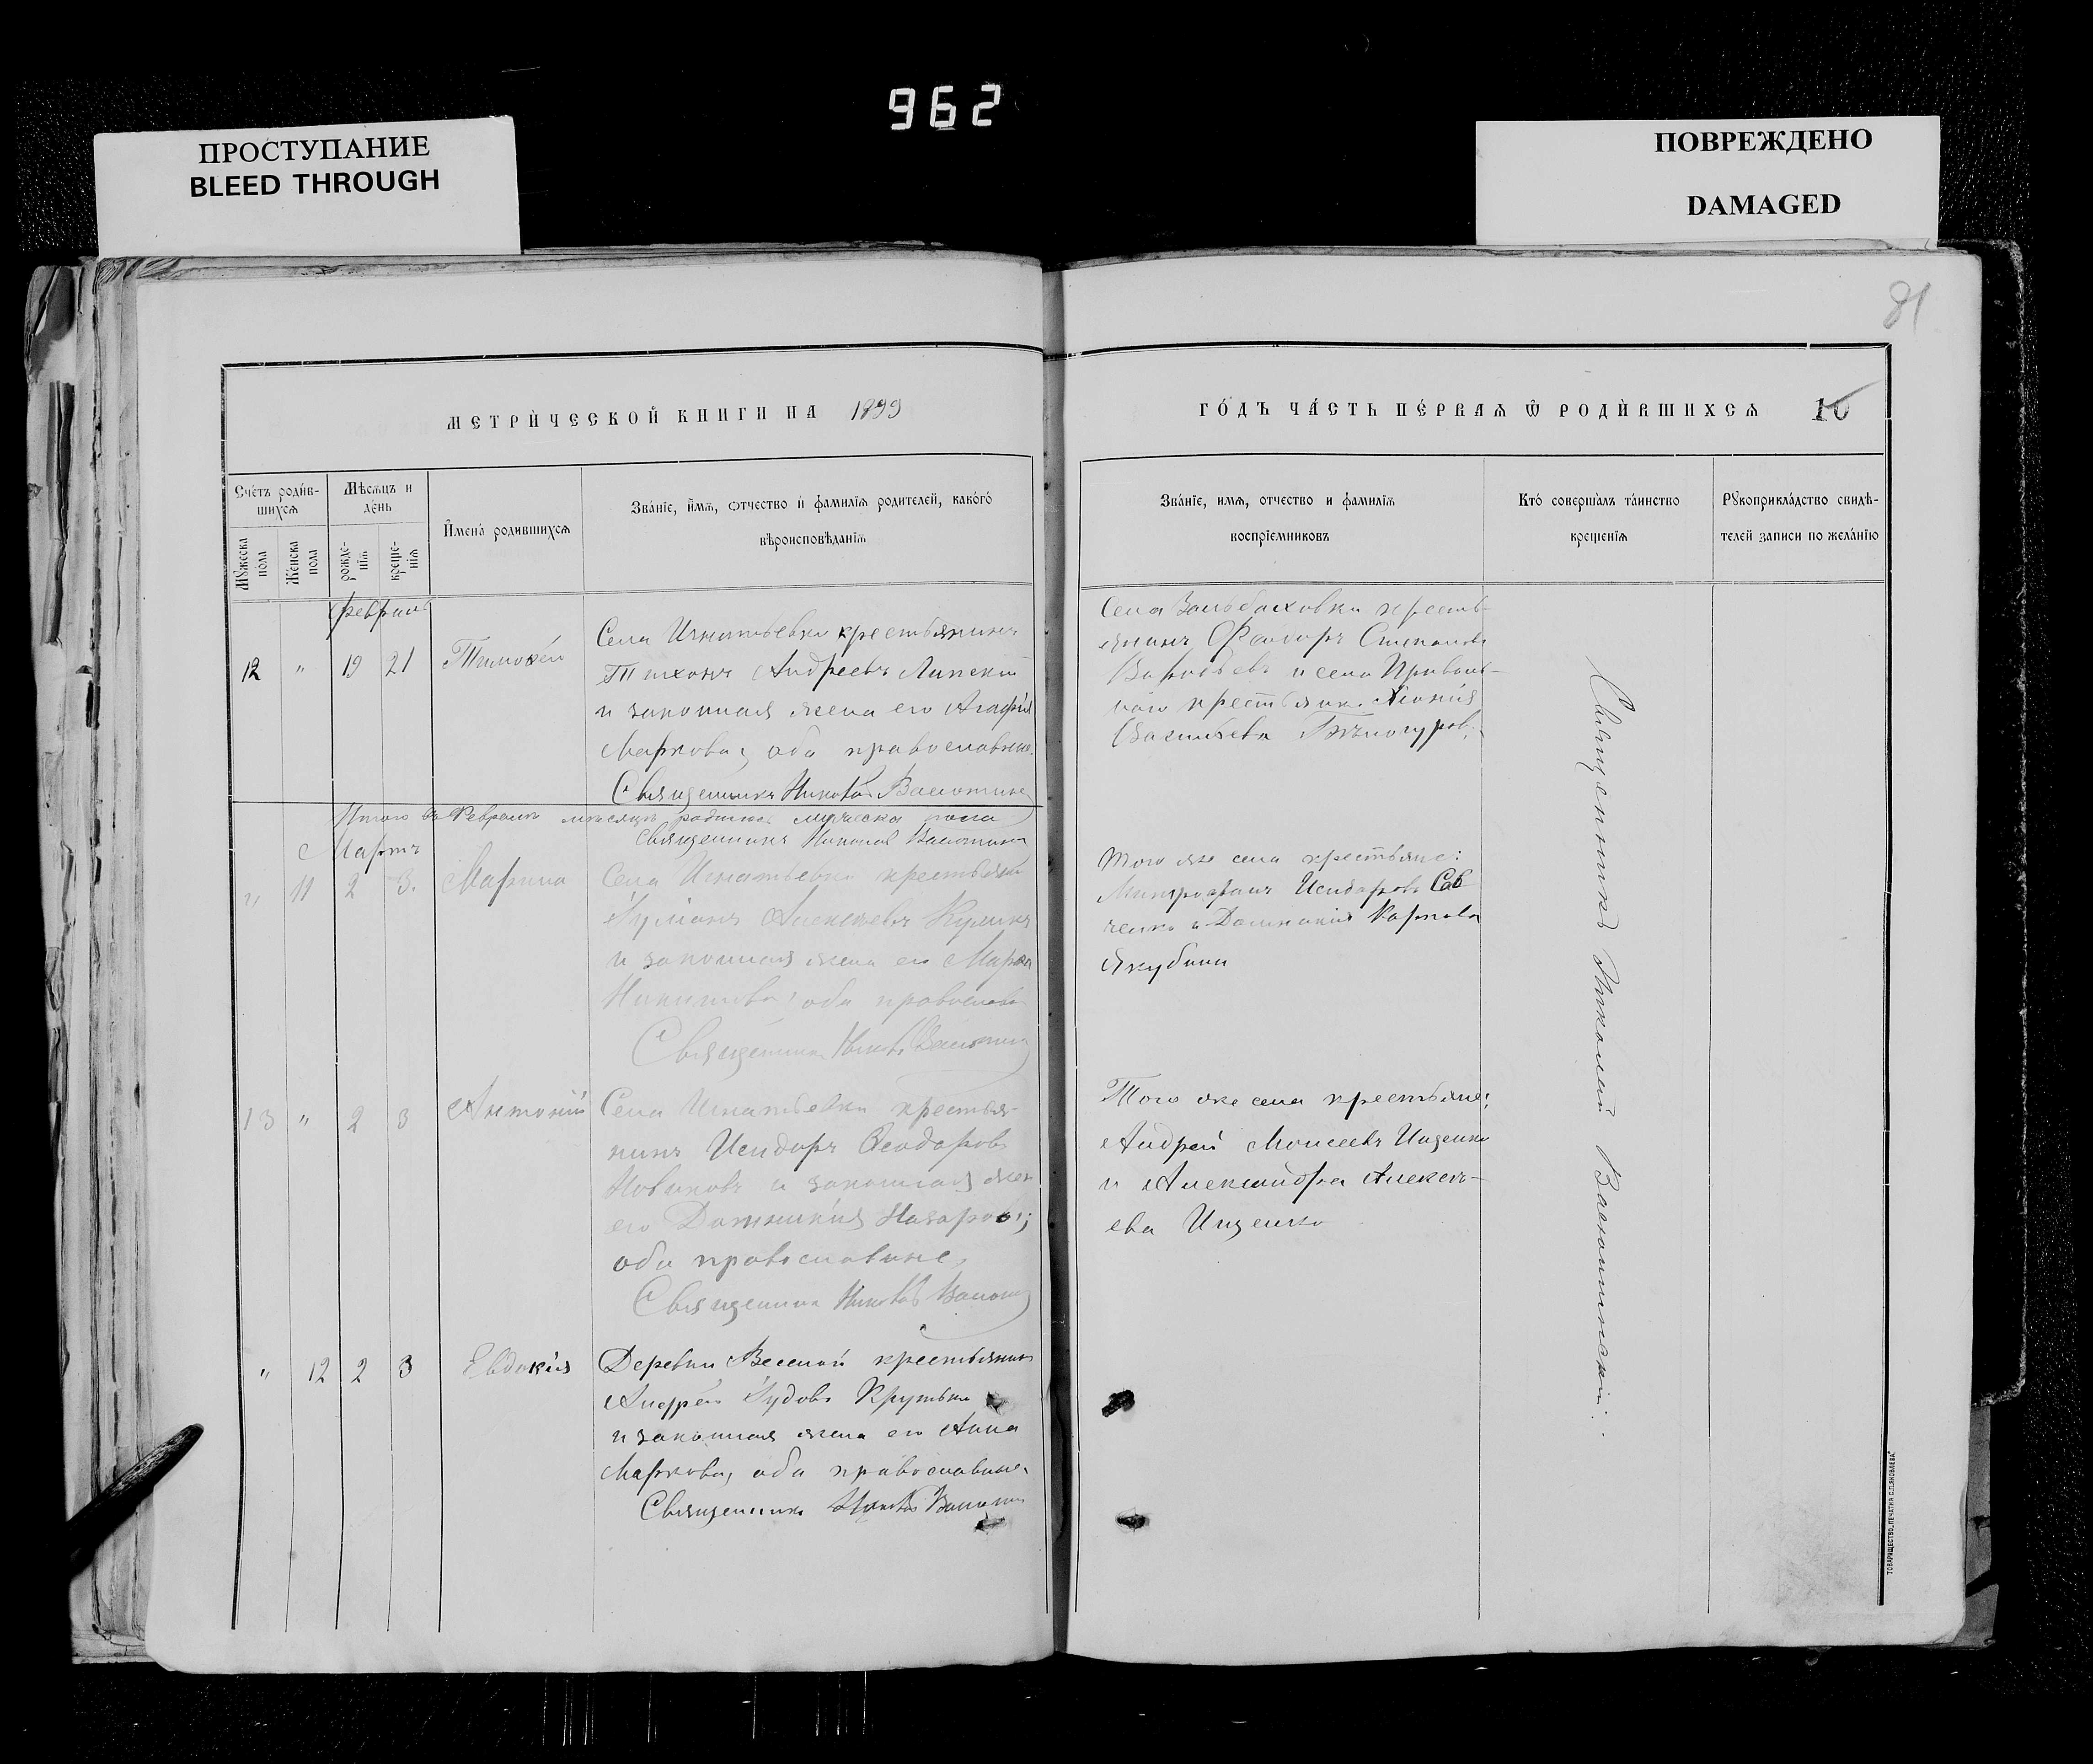 962
ПРОСТУПАНИЕ
BLEED THROUGH
ПОВРЕЖДЕНО
DAMAGED
81
МЕТРИ́ЧЕСКОЙ КНИГИ НА 1899
ГО́ДЪ ЧА́СТЬ ПЕ́РВАѦ Ѿ РОДИ́ВШИХСѦ 10
Сче́тъ роди́в-
шихсѧ
Мѣсѧцъ и
де́нь
Мꙋжеска
по́ла
Же́нска
пола
рожде-
нїѧ
креще-
нїѧ
И҆мена̀ родившихсѧ
Зва́нїе, и҆́мѧ, ѻтчество и҆ фамилїѧ родителей, како́гѡ
вѣроисповѣданїѧ
Зва́нїе, имѧ, отчество и фамилїѧ
воспрїемниковъ
Кто̀ соверша̀лъ та́инство
креще́нїѧ
Рꙋкоприкла́дство свидѣ-
телей записи по жела́нїю
Февраль
12 " 19 21 Тимофей
Села Игнатьевки крестьянинъ
Тихонъ Андреевъ Липскій
и законная жена его Агафія
Маркова, оба православные.
Священникъ Николай
Села крестья-
янинъ Ѳеодоръ Стефановъ
Воробьевъ и села Приволь-
наго крестьянк.
Васильева
Итого въ Февралѣ мѣсяцѣ родилось мужеска пола
Священникъ Николай
Мартъ
" 11 2 3. Марина
Села Игнатьевки крестьянин
Гуліанъ Алексѣевъ Куликъ
и законная жена его Марѳа
Никитина, оба православн
Священникъ
Того же села крестьяне:
Митрофанъ Исидоровъ Сав
ченко и Домникія Карпова
Якубина
13 " 2 3 Антоній
Села Игнатьевки крестья-
нинъ Исидоръ Ѳеодоровъ
Новиковъ и законная жен
его Домникія Назарова;
оба православные,
Священникъ
Того же села крестьяне:
Андрей Моисеевъ Ищенко
и Александра Алексѣ-
ева Ищенко
" 12 2 3 Евдокія
Деревни Веселой крестьянинъ
Андрей Іудовъ Крутько
и законная жена его Анна
Маркова, оба православные.
Священникъ
Священникъ Николай Васютинскій.
ТОВАРИЩЕСТВО „ПЕЧАТНЯ С.П.ЯКОВЛЕВА“